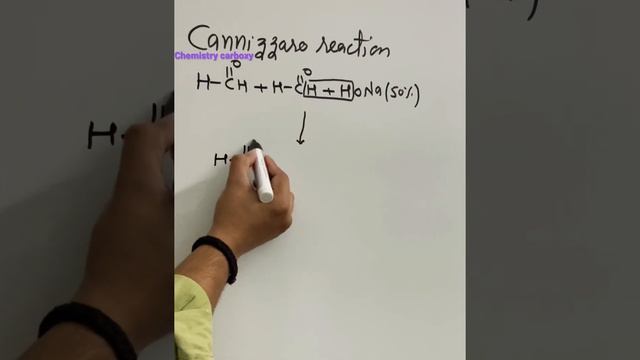 Cannizzaro reaction
Chemistry carboxy
O O
H-C H + H-C H + H ONa (50%)
H-